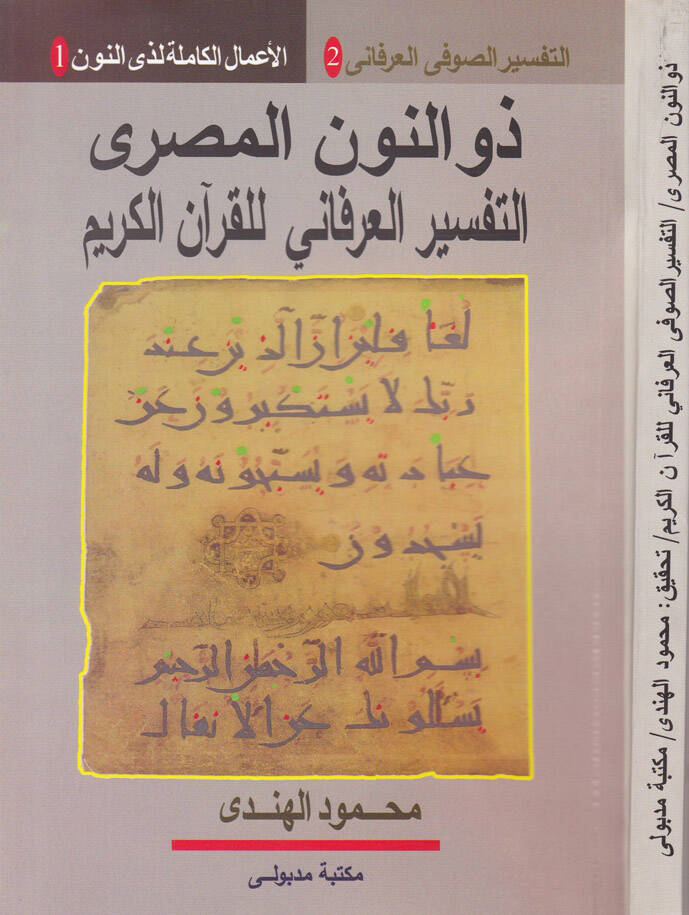 التفسير الصوفى العرفانى 2
الأعمال الكاملة لذى النون 1
ذو النون المصرى
التفسير العرفاني للقرآن الكريم
لغافلين ان الذين عند
ربك لا يستكبرون عن
عبادته ويسبحونه وله
يسجدون
بسم الله الرحمن الرحيم
يسألونك عن الانفال
محمود الهندى
مكتبة مدبولى
ذو النون المصرى/ التفسير الصوفى العرفاني للقرآن الكريم/ تحقيق: محمود الهندى/ مكتبة مدبولى